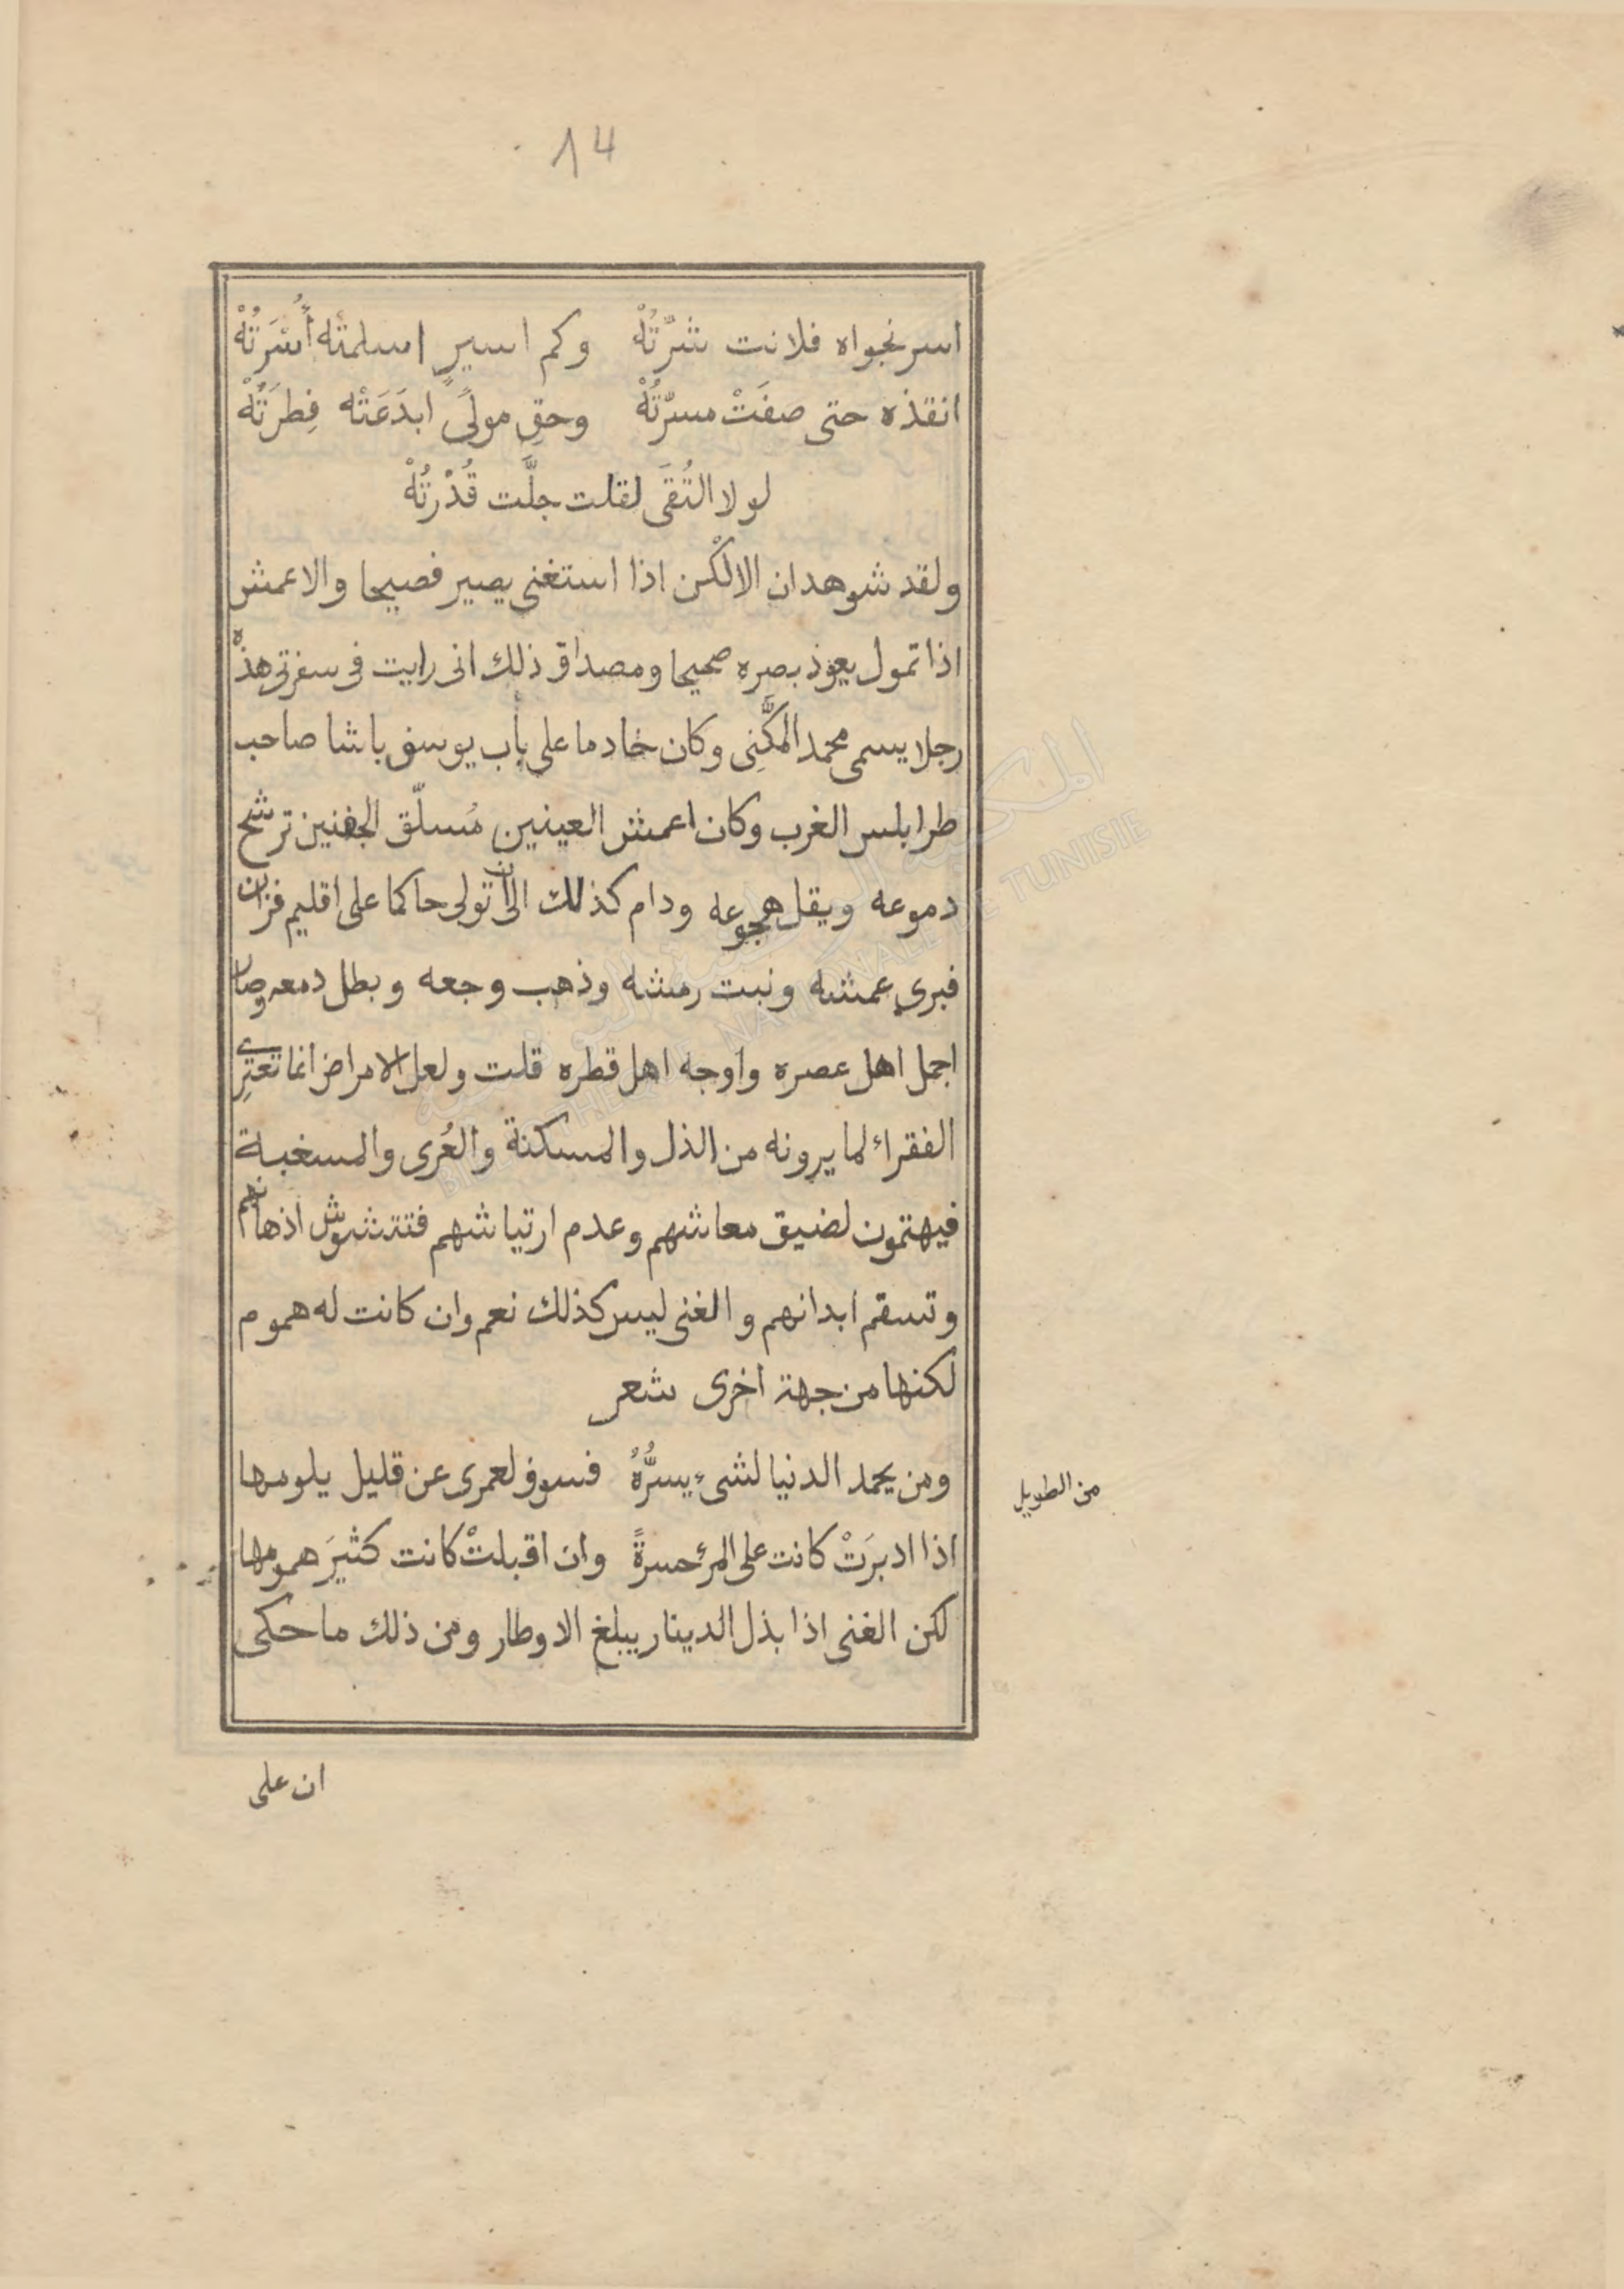 14
اسر نجواه فلانت شرّتُهْ وكم اسيرٍ اسلمتْه اُسْرَتُهْ
انقذه حتى صفَتْ مسرّتُهْ وحقِ مولىً ابدَعَتْه فِطرَتُهْ
لولا التُقَى لقلت جلَّت قُدْرتُهْ
ولقد شوهد ان الالْكن اذا استغنى يصير فصيحا والاعمش
اذا تمول يعود بصره صحيحا ومصداق ذلك انى رايت فى سفرتى هذه
رجلا يسمى محمد المكَّنِى وكان خادما على باب يوسف باشا صاحب
طرابلس الغرب وكان اعمش العينين مُسلّق الجفنين ترشح
دموعه ويقل هجوعه ودام كذلك الى ان تولى حاكما على اقليم فزان
فبرى عمشه ونبت رمشه وذهب وجعه وبطل دمعه وصار
اجمل اهل عصره واوجه اهل قطره قلت ولعل الامراض انما تعترِى
الفقراء لما يرونه من الذل والمسكنة والعُرى والمسغبة
فيهتمون لضيق معاشهم وعدم ارتياشهم فتتشوش اذهانهم
وتسقم ابدانهم والغنى ليس كذلك نعم وان كانت له هموم
لكنها من جهة اخرى شعر
ومن يحمد الدنيا لشىء يسرُّهُ فسوف لعمرى عن قليل يلومها
من الطويل
اذا ادبرَتْ كانت على المرء حسرةً وان اقبلتْ كانت كثيرَ همومها
لكن الغنى اذا بذل الدينار يبلغ الاوطار ومن ذلك ما حكى
ان على
المكتبة الوطنية التونسية
BIBLIOTHEQUE NATIONALE DE TUNISIE